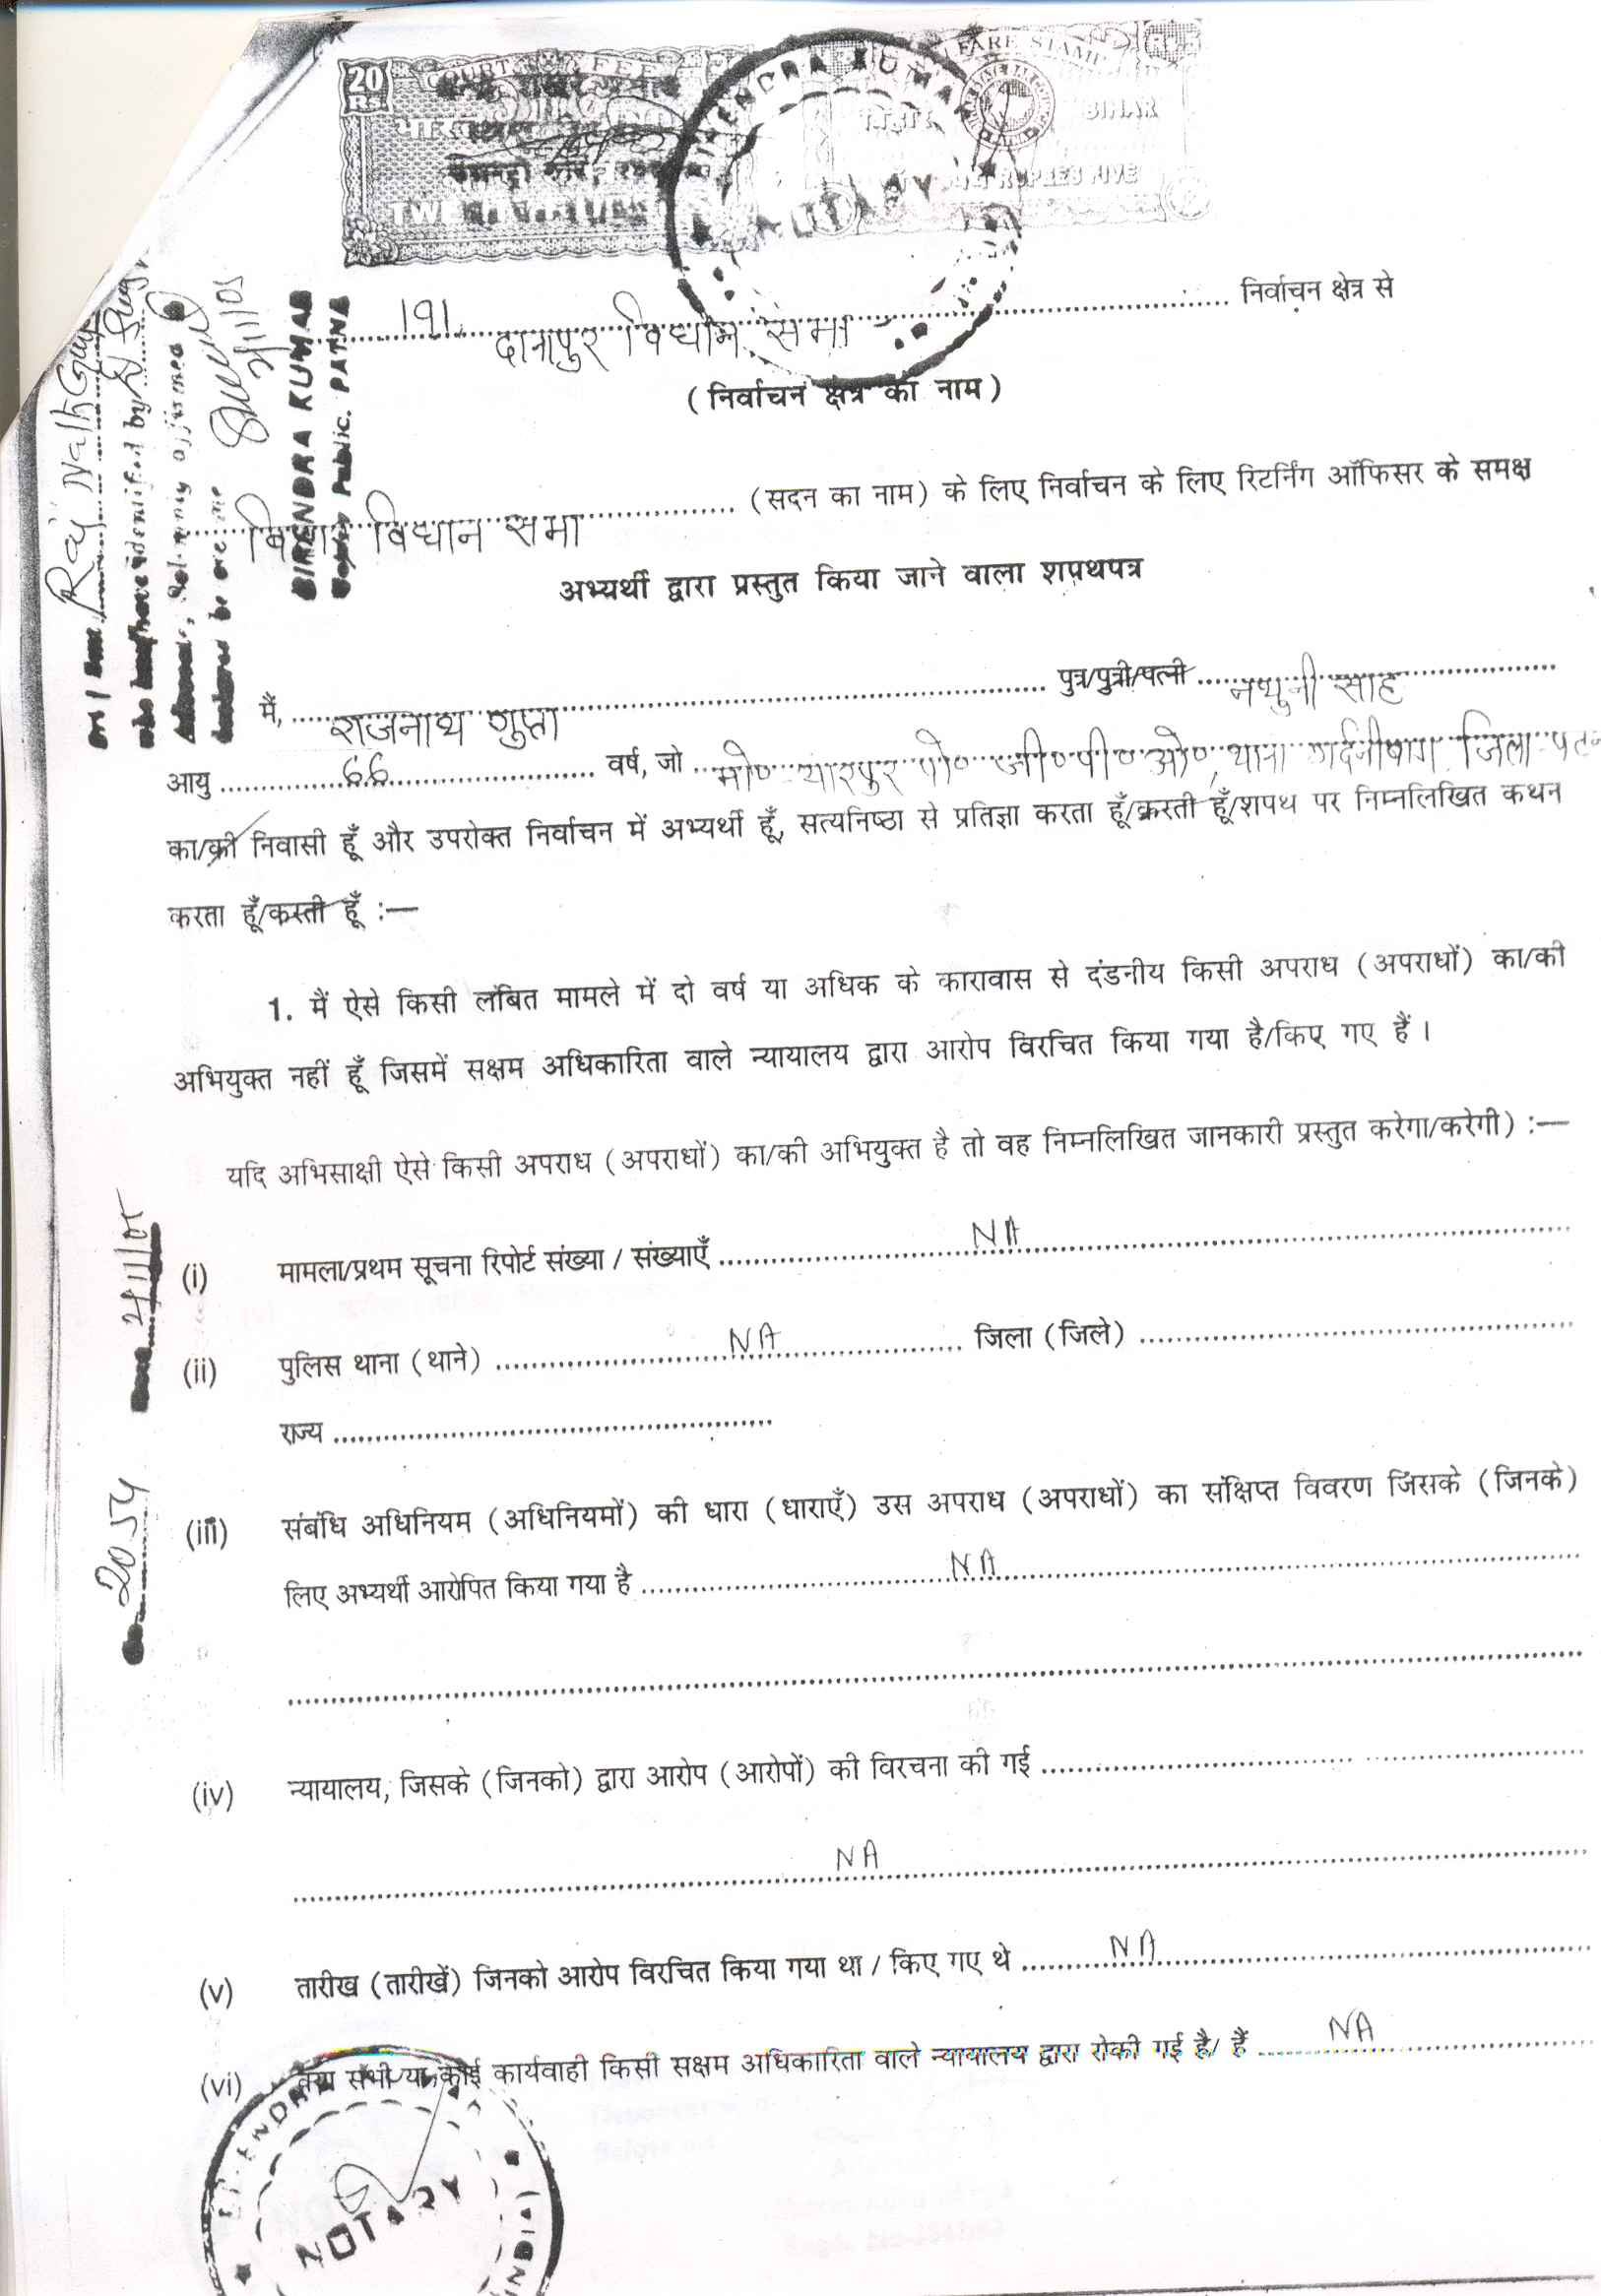 20 Rs.
COURT FEE
WELFARE STAMP
BIHAR
RUPEES FIVE
BIRENDRA KUMAR
NOTARY
191. दानापुर विधान सभा निर्वाचन क्षेत्र से
(निर्वाचन क्षेत्र का नाम)
बिहार विधान सभा (सदन का नाम) के लिए निर्वाचन के लिए रिटर्निंग ऑफिसर के समक्ष
अभ्यर्थी द्वारा प्रस्तुत किया जाने वाला शपथपत्र
मैं, राजनाथ गुप्ता पुत्र/पुत्री/पत्नी नथुनी साह
आयु 66 वर्ष, जो मो० यारपुर पो० जी०पी०ओ०, थाना गर्दनीबाग जिला पटना
का/की निवासी हूँ और उपरोक्त निर्वाचन में अभ्यर्थी हूँ, सत्यनिष्ठा से प्रतिज्ञा करता हूँ/करती हूँ/शपथ पर निम्नलिखित कथन
करता हूँ/करती हूँ :—
1. मैं ऐसे किसी लंबित मामले में दो वर्ष या अधिक के कारावास से दंडनीय किसी अपराध (अपराधों) का/की
अभियुक्त नहीं हूँ जिसमें सक्षम अधिकारिता वाले न्यायालय द्वारा आरोप विरचित किया गया है/किए गए हैं ।
यदि अभिसाक्षी ऐसे किसी अपराध (अपराधों) का/की अभियुक्त है तो वह निम्नलिखित जानकारी प्रस्तुत करेगा/करेगी) :—
(i) मामला/प्रथम सूचना रिपोर्ट संख्या / संख्याएँ NA
(ii) पुलिस थाना (थाने) NA जिला (जिले)
राज्य
(iii) संबंधि अधिनियम (अधिनियमों) की धारा (धाराएँ) उस अपराध (अपराधों) का संक्षिप्त विवरण जिसके (जिनके)
लिए अभ्यर्थी आरोपित किया गया है NA
(iv) न्यायालय, जिसके (जिनको) द्वारा आरोप (आरोपों) की विरचना की गई
NA
(v) तारीख (तारीखें) जिनको आरोप विरचित किया गया था / किए गए थे NA
(vi) क्या सभी या कोई कार्यवाही किसी सक्षम अधिकारिता वाले न्यायालय द्वारा रोकी गई है/ हैं NA
Raj Nath
identified by
BIRENDRA KUMAR
Public. PATNA
NOTARY